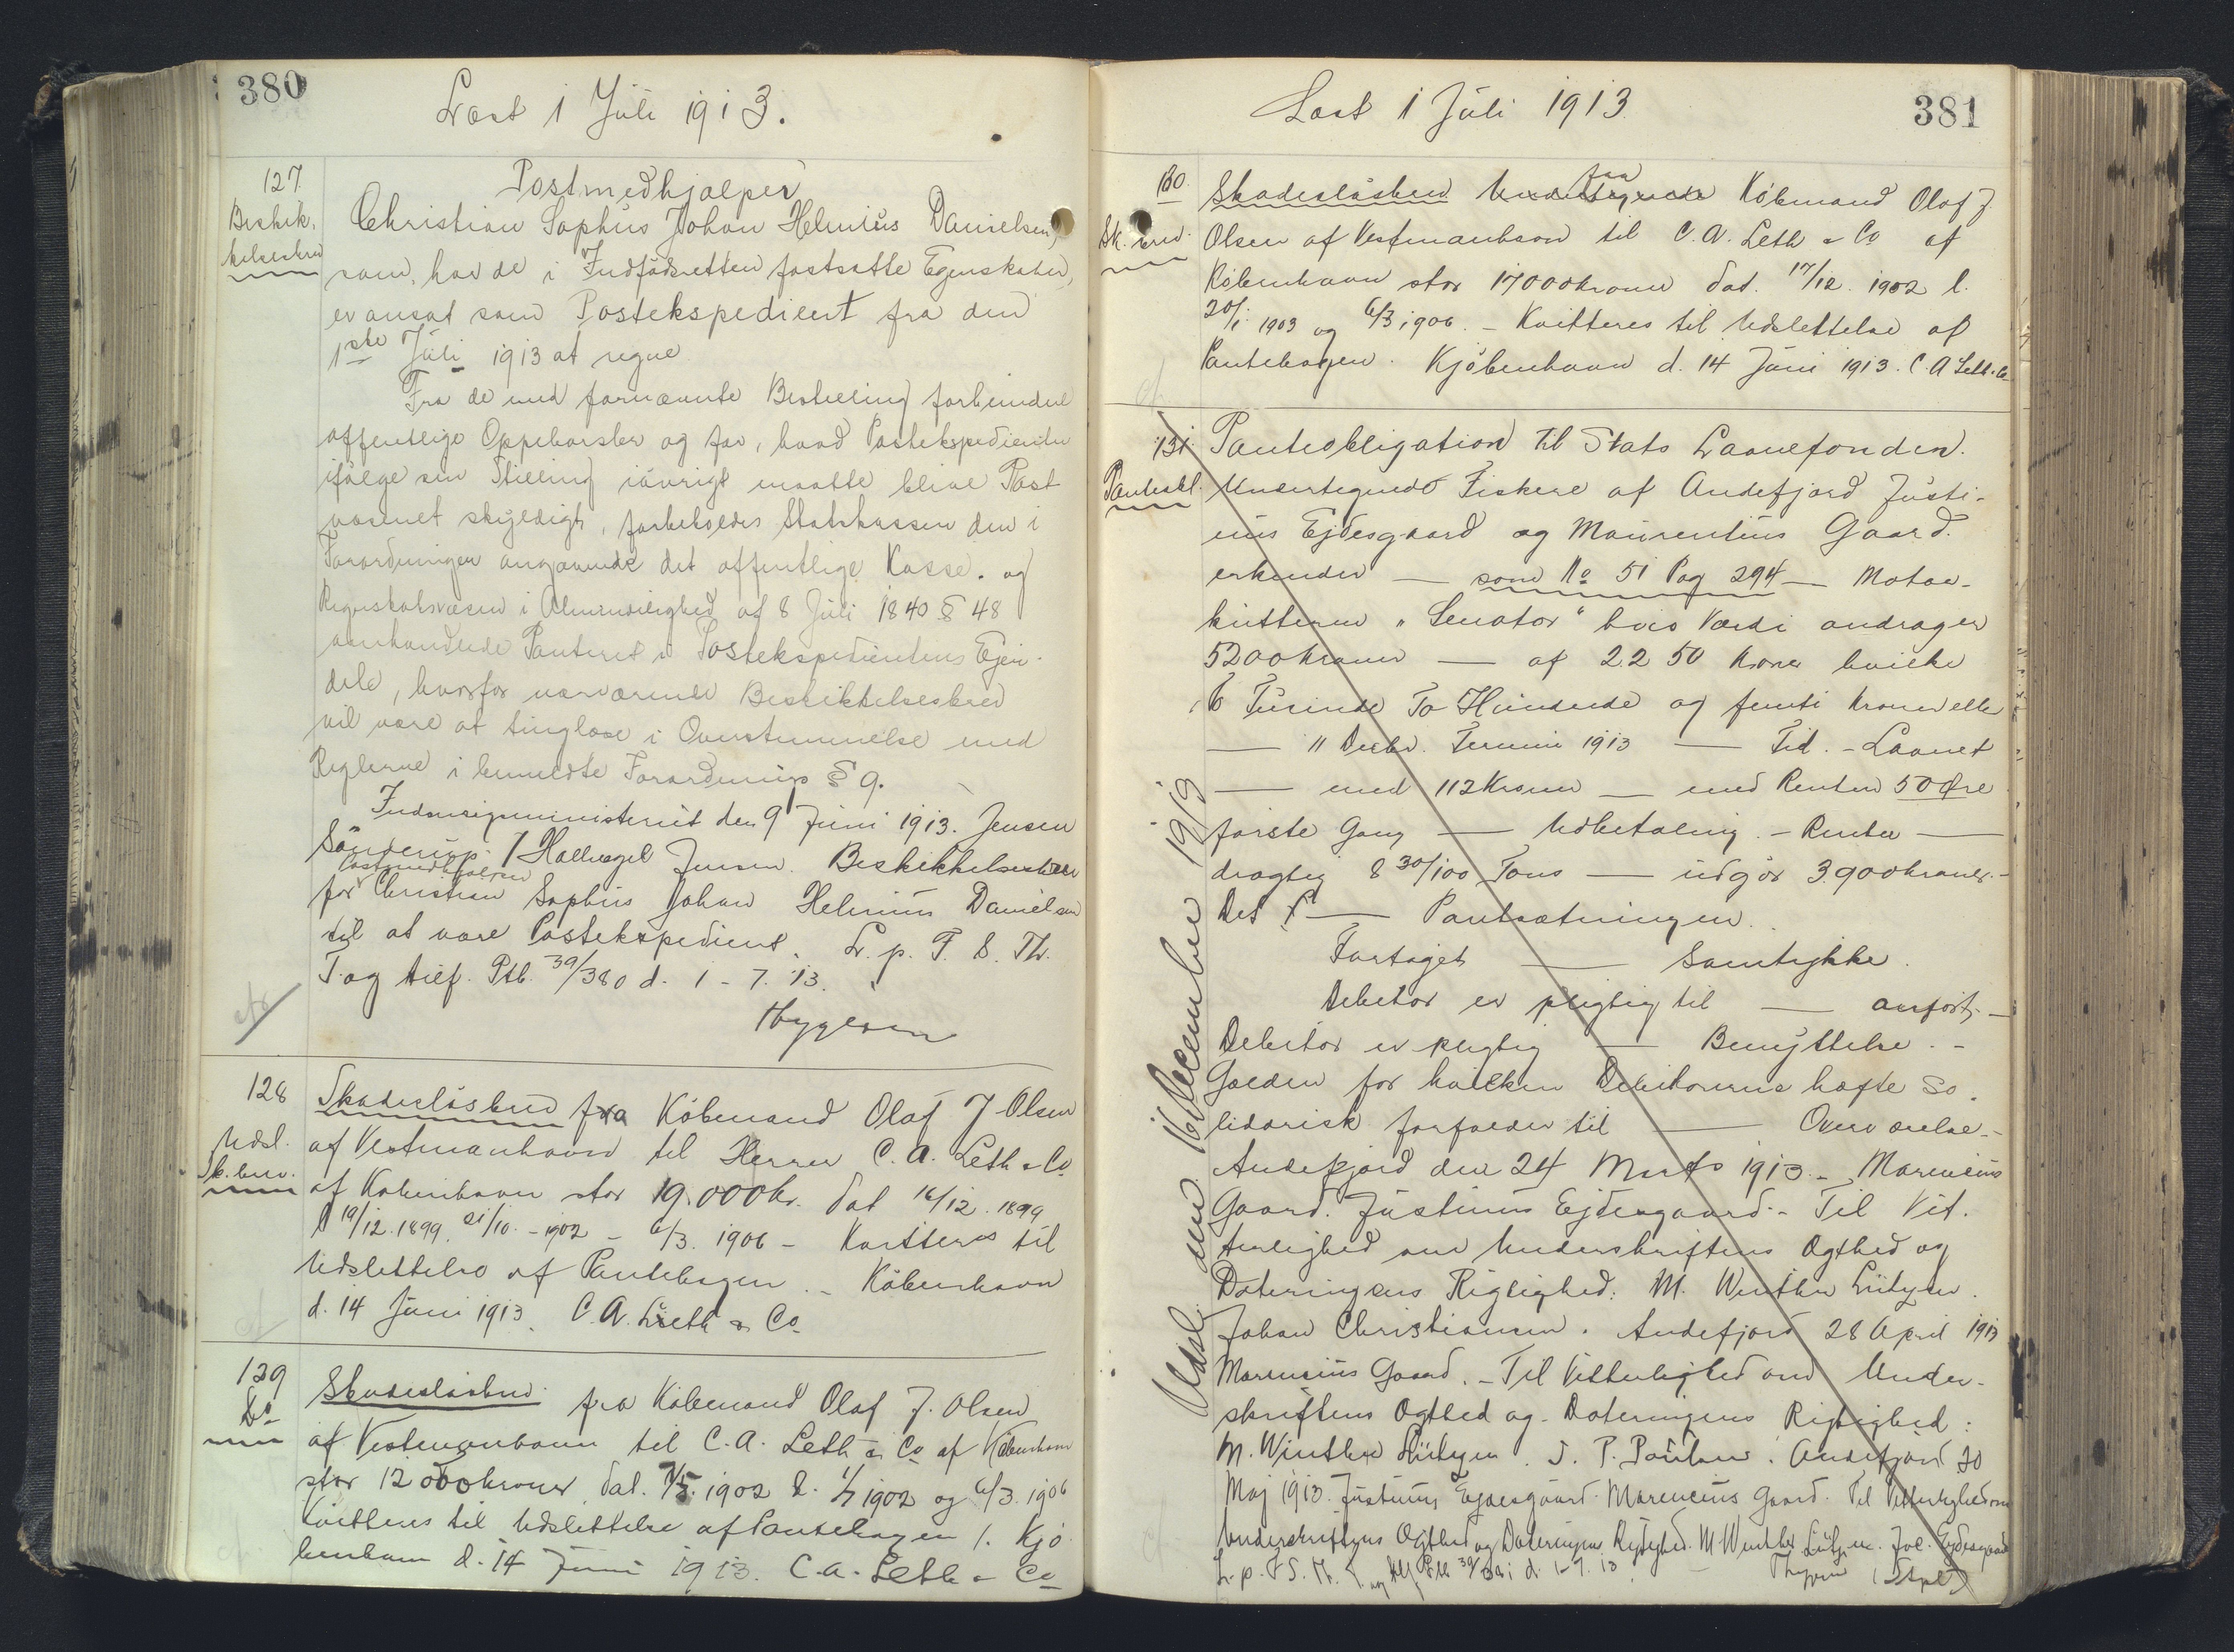 380
Læst 1 Juli 1913.
127
Beskik-
kelsesbrev
Postmedhjælper
Christian Sophus Johan Helenius Danielsen,
som har de i Indfødsretten fastsatte Egenskaber,
er ansat som Postekspedient fra den
1ste Juli 1913 at regne
Fra de med fornævnte Bestilling forbundne
offentlige Oppebørsler og for, hvad Postekspedienten
ifølge sin Stilling iøvrigt maatte blive Post
væsenet skyldigt, forbeholdes Statskassen den i
Forordningen angaaende det offentlige Kasse- og
Regnskabsvæsen i Almindelighed af 8 Juli 1840 § 48
omhandlede Panteret i Postekspedientens Ejen-
dele, hvorfor nærværende Beskikkelsesbrev
vil være at tinglæse i Overstemmelse med
Reglerne i bemeldte Forordnings § 9.
Indenrigsministeriet den 9 Juni 1913. Jensen
Sønderup / Hallvegel Jensen. Beskikkelsesbrev
for Postmedhjælper Christian Sophus Johan Helenius Danielsen
til at være Postekspedient. L. p. F. S. Th.
T. og tilf. Ptb. 39/380 d. 1 - 7. 13.
Thygesen
128
Udsl.
Sk. brev.
Skadesløsbrev fra Købmand Olaf J. Olsen
af Vestmanhavn til Herrer C. A. Leth & Co
af København stor 19.000 kr. dat 16/12. 1899
l 19/12. 1899. 21/10. - 1902 - 6/3. 1906 - Kvitteres til
Udslettelse af Pantebogen. - København
d. 14 Juni 1913. C. A. Leth & Co
129
Do
Skadesløsbrev fra Købmand Olaf J. Olsen
af Vestmanhavn til C. A. Leth & Co af København
stor 12000 kroner dat. 7/5. 1902 l. 1/7 1902 og 6/3. 1906
Kvitteres til Udslettelse af Pantebogen /. Kjø
benhavn d. 14 Juni 1913. C. A. Leth & Co
Læst 1 Juli 1913
381
130.
Sk. brev.
Skadesløsbrev fra Undertegnede Købmand Olaf J.
Olsen af Vestmanhavn til C. A. Leth & Co af
København stor 17000 kroner dat. 17/12. 1902 l.
20/1. 1903 og 6/3 1906. - Kvitteres til Udslettelse af
Pantebogen. Kjøbenhavn d. 14 Juni 1913. C. A Leth & Co
131.
Panteobl.
Panteobligation til Stats Laanefonden.
Undertegnede Fiskere af Andefjord Justi-
nus Ejdesgaard og Maurentius Gaard
erkender — som No 51 Pag 294 — Motor-
kutteren "Senator" hvis Værdi andrager
5200 kroner — af 2250 Kroner hvilke
To Tusinde To Hundrede og femti kroner eller
— 11 Decbr. Termin 1913 — Tid. - Laanet
— med 112 Kroner — med Renten 50 Øre
første Gang — Udbetaling. - Renter —
drægtig 8 30/100 Tons — udgør 3.900 kroner. -
Det — Pantsætningen.
Fartøjet — Samtykke.
Debitor er pligtig til — anført. -
Debitor er pligtig — Benyttelse. -
Gælden for hvilken Debitorerne hæfte so-
lidarisk forfalder til — Overværelse. -
Andefjord den 24 Marts 1913. - Marencius
Gaard. Justinus Ejdesgaard. - Til Vit-
terlighed om Underskriftens Ægthed og
Dateringens Rigtighed: M. Winther Lützen.
Johan Christiansen. Andefjord 28 April 1913
Marencius Gaard. - Til Vitterlighed om Under-
skriftens Ægthed og Dateringens Rigtighed:
M. Winther Lützen. J. P. Poulsen. Andefjord 20
Maj 1913. Justinus Ejdesgaard. Marencius Gaard. Til Vitterlighed om
Underskriftens Ægthed og Dateringens Rigtighed. M Winther Lützen. Joe. Ejdesgaard
L. p. F S. Th. T. og tilf Ptb 39/381 d. 1-7. 13. Thygesen (Stpl)
Udsl. den 16 December 1919